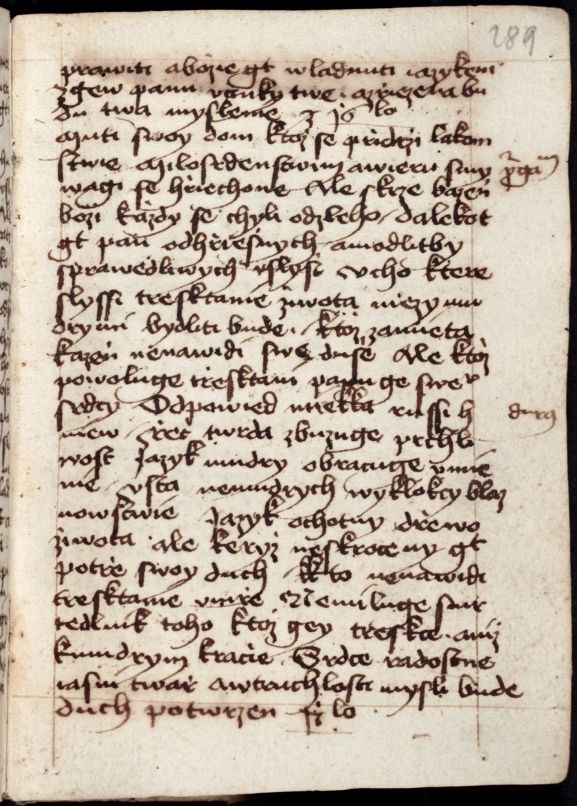 289
prawiti a bozie gt wladnuti iazykem
zgew panu vczinky twe a zrzezena bu
du twa myslenie
zmuti swoy dom ktoz se przidrzi lakom
stwie Milosrdenstwim a wieru smy
wagi se hrziechowe Ale skrze bazen
bozi kazdy se chyli od zleho Dalekot
gt pan od hrziesnych a modlitby
sprawedliwych vslysi Vcho ktere
slyssi tresktanie ziwota mezy mu
drymi bydliti bude. Ktoz zamieta
kazen nenawidi swe dusse Ale ktoz
powoluge tresktani panuge swe
srdcy Odpowied miekka russi h
niew Rzec twrda zbuzuge prchli
wost Jazyk mudry obracuge vmie
nie vsta nemudrych wyklokcy blaz
nowstwie Jazyk ochotny drzewo
ziwota ale keryz neskroceny gt
potrze swoy duch Kto nenawidi
tresktanie vmrze Nemiluge smr
tedlnik toho ktoz gey treskce aniz
k mudrym kracie Srdce radostne
iasni twarz a w truchlosti mysli bude
duch potwrzen